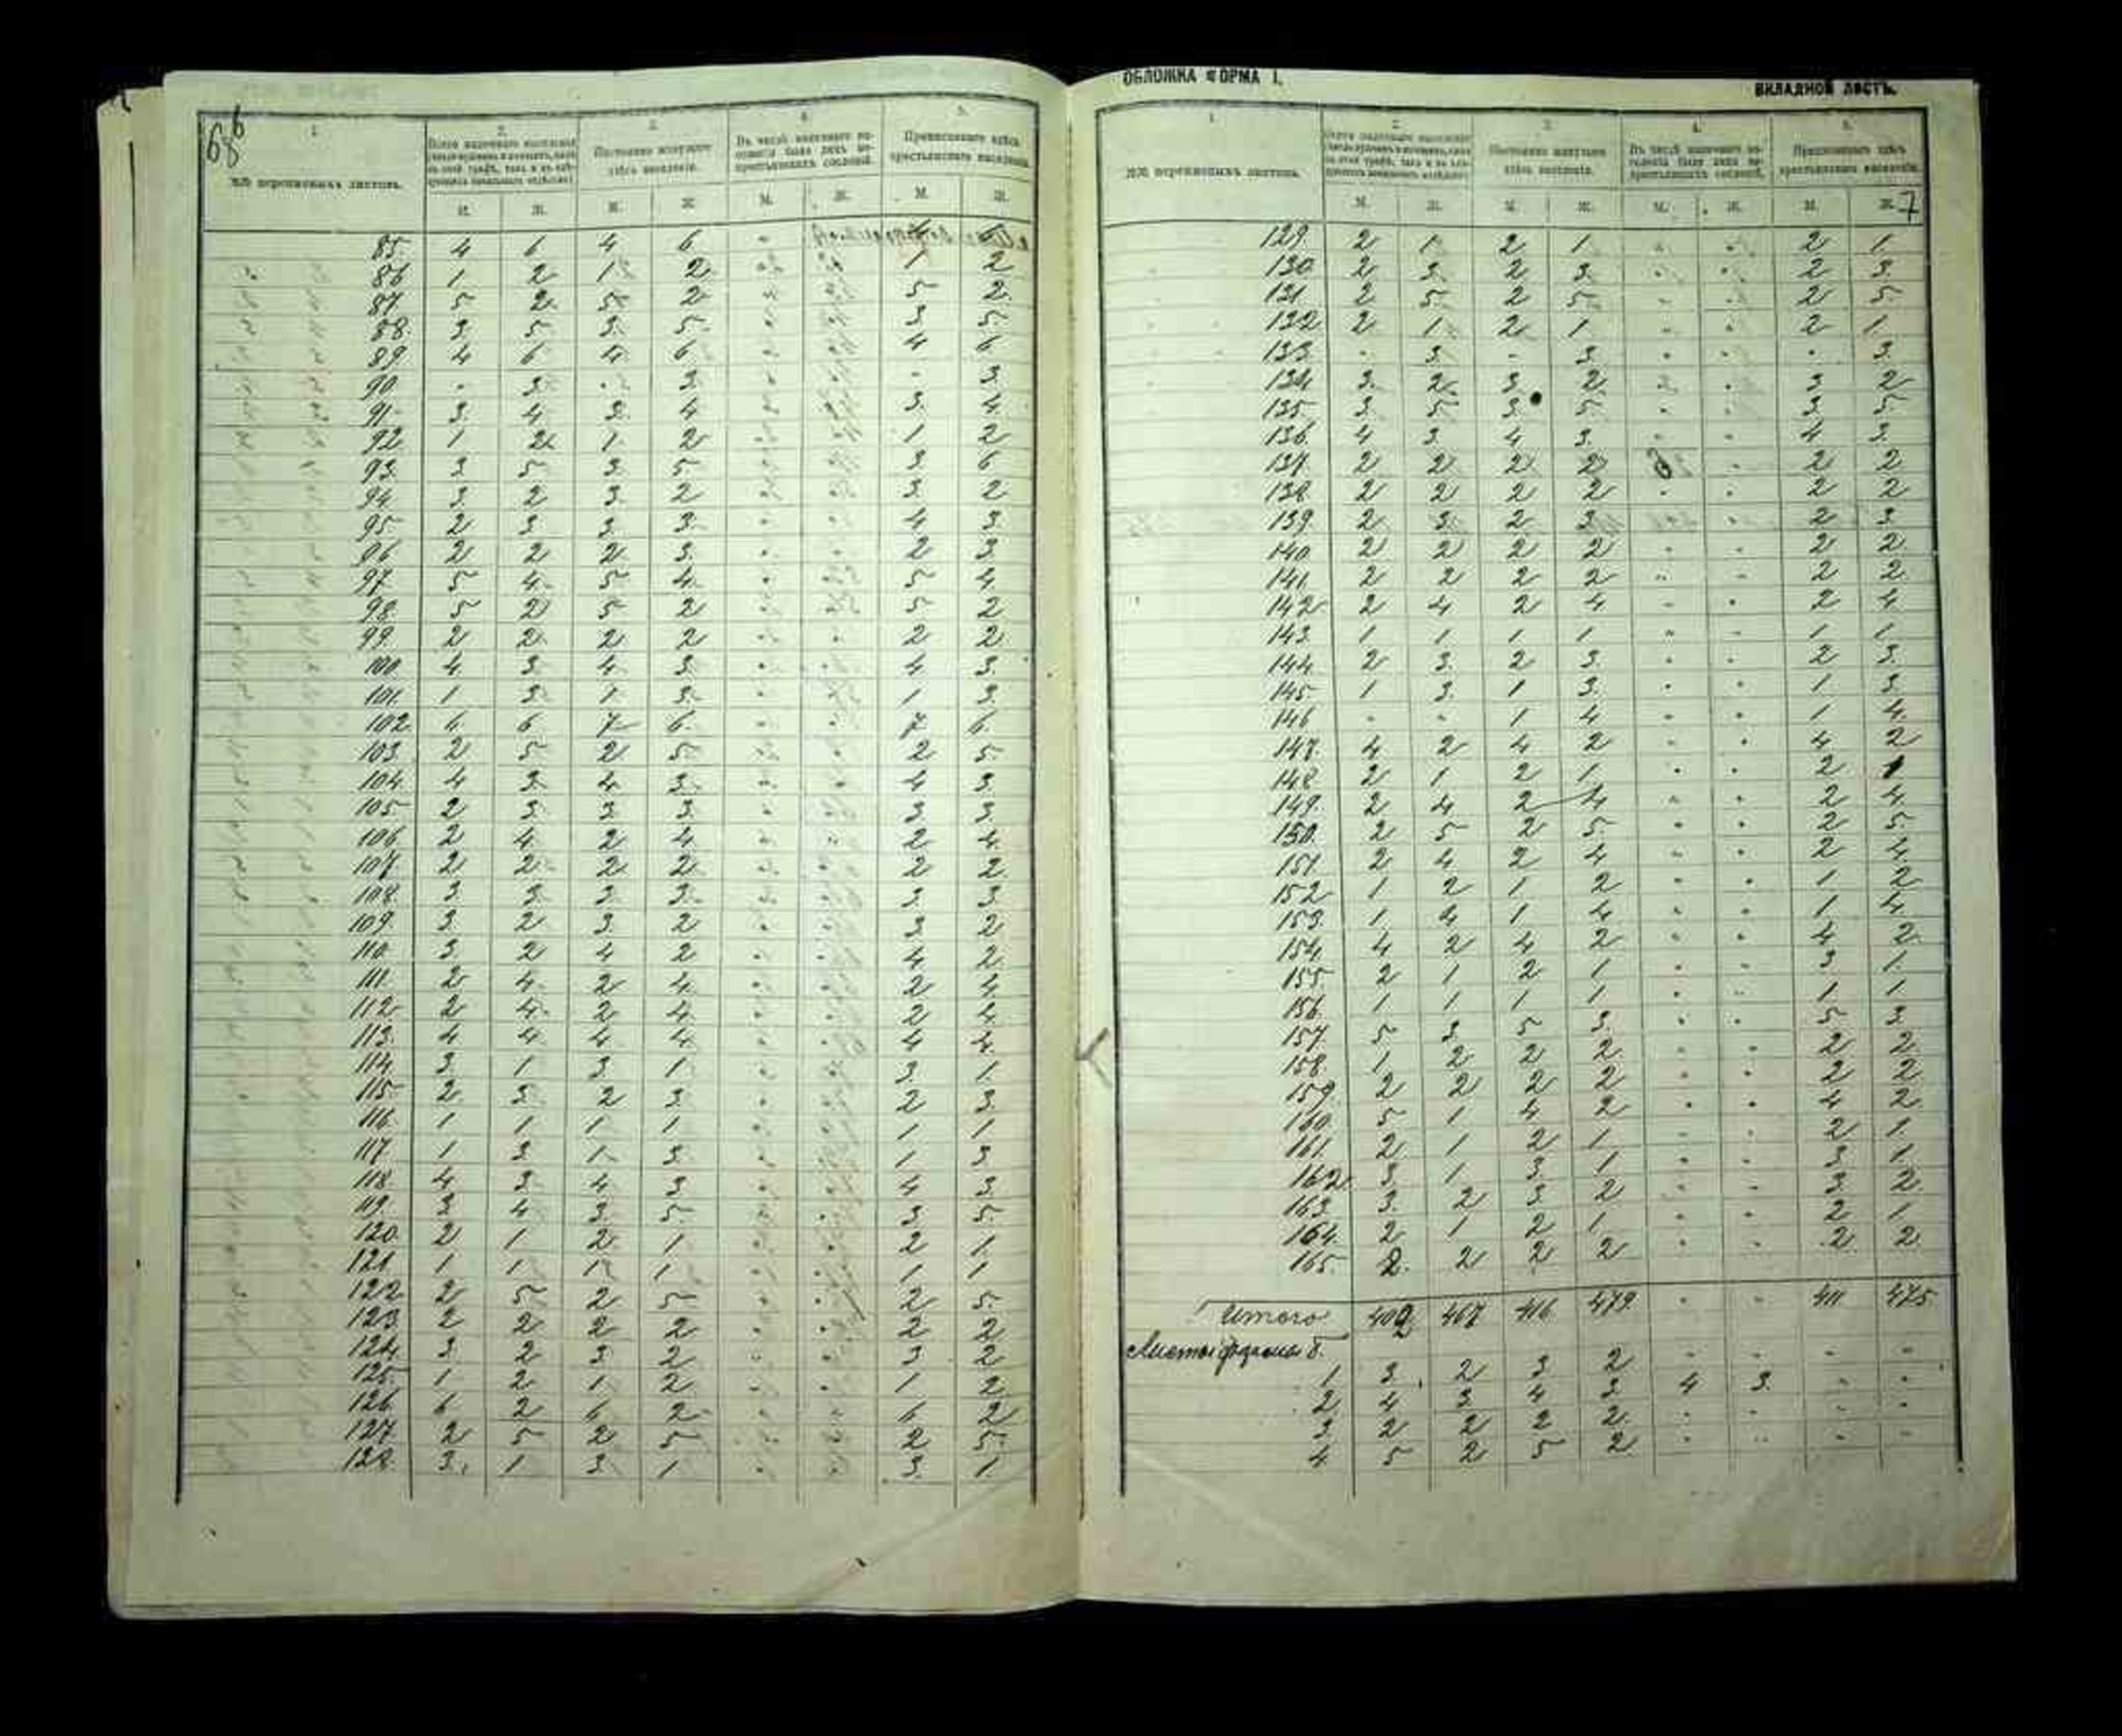 6
68
1. 2. 3. 4. 5.
№№ переписныхъ листовъ.
Постоянно живущаго здѣсь населенія.
Въ числѣ наличнаго населенія было лицъ не крестьянскихъ сословій.
Приписаннаго здѣсь крестьянскаго населенія.
М. Ж. М. Ж. М. Ж. М. Ж.
85. 4 6 4 6 "
86 1 2 1 2 1 2
87 5 2 5 2 5 2
88. 3 5 3 5 3 5
89 4 6 4 6 4 6
90 " 3 " 3 " 3
91 3 4 3 4 3 4
92 1 2 1 2 1 2
93. 3 5 3 5 3 6
94 3 2 3 2 3 2
95 2 3 3 3 4 3
96 2 2 2 3 2 3
97 5 4 5 4 5 4
98. 5 2 5 2 5 2
99. 2 2 2 2 2 2
100 4 3 4 3 4 3
101. 1 3 1 3 1 3
102. 6 6 7 6 7 6
103 2 5 2 5 2 5
104. 4 3 4 3 4 3
105 2 3 3 3 3 3
106 2 4 2 4 2 4
107. 2 2 2 2 2 2
108. 3 3 3 3 3 3
109. 3 2 3 2 3 2
110. 3 2 4 2 4 2
111. 2 4 2 4 2 4
112 2 4 2 4 2 4
113. 4 4 4 4 4 4
114 3 1 3 1 3 1
115 2 3 2 3 2 3
116. 1 1 1 1 1 1
117. 1 3 1 3 1 3
118. 4 3 4 3 4 3
119. 3 4 3 5 3 5
120. 2 1 2 1 2 1
121 1 1 1 1 1 1
122 2 5 2 5 2 5
123 2 2 2 2 2 2
124 3 2 3 2 3 2
125. 1 2 1 2 1 2
126 6 2 6 2 6 2
127 2 5 2 5 2 5
128. 3 1 3 1 3 1
ОБЛОЖКА ФОРМА 1.
ВКЛАДНОЙ ЛИСТЪ.
1. 2. 3. 4. 5.
№№ переписныхъ листовъ.
Постоянно живущаго здѣсь населенія.
Въ числѣ наличнаго населенія было лицъ не крестьянскихъ сословій.
Приписаннаго здѣсь крестьянскаго населенія.
М. Ж. М. Ж. М. Ж. М. Ж. 7
129. 2 1 2 1 " " 2 1
130. 2 3 2 3 " " 2 3
131 2 5 2 5 " " 2 5
132 2 1 2 1 " " 2 1
133. " 3 " 3 " " " 3
134 3 2 3 2 " 3 2
135. 3 5 3 5 " " 3 5
136. 4 3 4 3 " " 4 3
137. 2 2 2 2 " 2 2
138 2 2 2 2 " " 2 2
139. 2 3 2 3 " 2 3
140 2 2 2 2 " " 2 2
141. 2 2 2 2 " " 2 2
142 2 4 2 4 " " 2 4
143. 1 1 1 1 " " 1 1
144. 2 3 2 3 " " 2 3
145 1 3 1 3 " " 1 3
146 " " 1 4 " " 1 4
147. 4 2 4 2 " " 4 2
148 2 1 2 1 " " 2 1
149. 2 4 2 4 " " 2 4
150. 2 5 2 5 " " 2 5
151. 2 4 2 4 " " 2 4
152 1 2 1 2 " " 1 2
153. 1 4 1 4 " " 1 4
154. 4 2 4 2 " " 4 2
155 2 1 2 1 " " 3 1
156. 1 1 1 1 " " 1 1
157. 5 3 5 3 " " 5 3
158. 1 2 2 2 " " 2 2
159. 2 2 2 2 " " 2 2
160. 5 1 4 2 " " 4 2
161. 2 1 2 1 " " 2 1
162. 3 1 3 1 " " 3 1
163. 3 2 3 2 " " 3 2
164. 2 1 2 1 " " 2 1
165. 2 2 2 2 " " 2 2
Итого 409 467 416 479. " " 411 475
Листы формы Б.
1 3 2 3 2 " " " "
2 4 3 4 3 4 3 " "
3 2 2 2 2 " " " "
4 5 2 5 2 " " " "